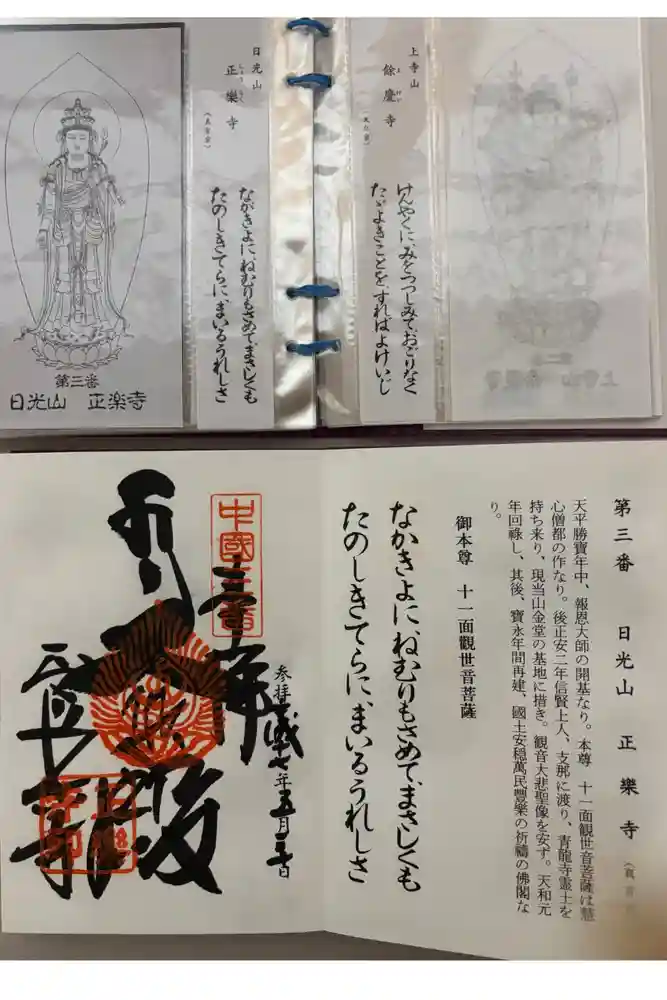 上寺山
餘慶寺
よけい
けんやくにみをつつしみておごりなく
たゞよきことをすればよけいじ
日光山
正樂寺
ながきよに、ねむりもさめてまさしくも
たのしきてらに、まいるうれしさ
第三番
日光山　正楽寺
第三番　日光山　正樂寺
天平勝寶年中、報恩大師の開基なり。本尊　十一面観世音菩薩は慧
心僧都の作なり。後正安二年信賢上人、支那に渡り、青龍寺霊土を
持ち来り、現当山金堂の基地に措き。観音大悲聖像を安ず。天和元
年回祿し、其後、寶永年間再建、國土安穏萬民豐樂の祈禱の佛閣な
り。
御本尊　十一面觀世音菩薩
なかきよに、ねむりもさめてまさしくも
たのしきてらに、まいるうれしさ
中國三番
参拝
七年五月
日